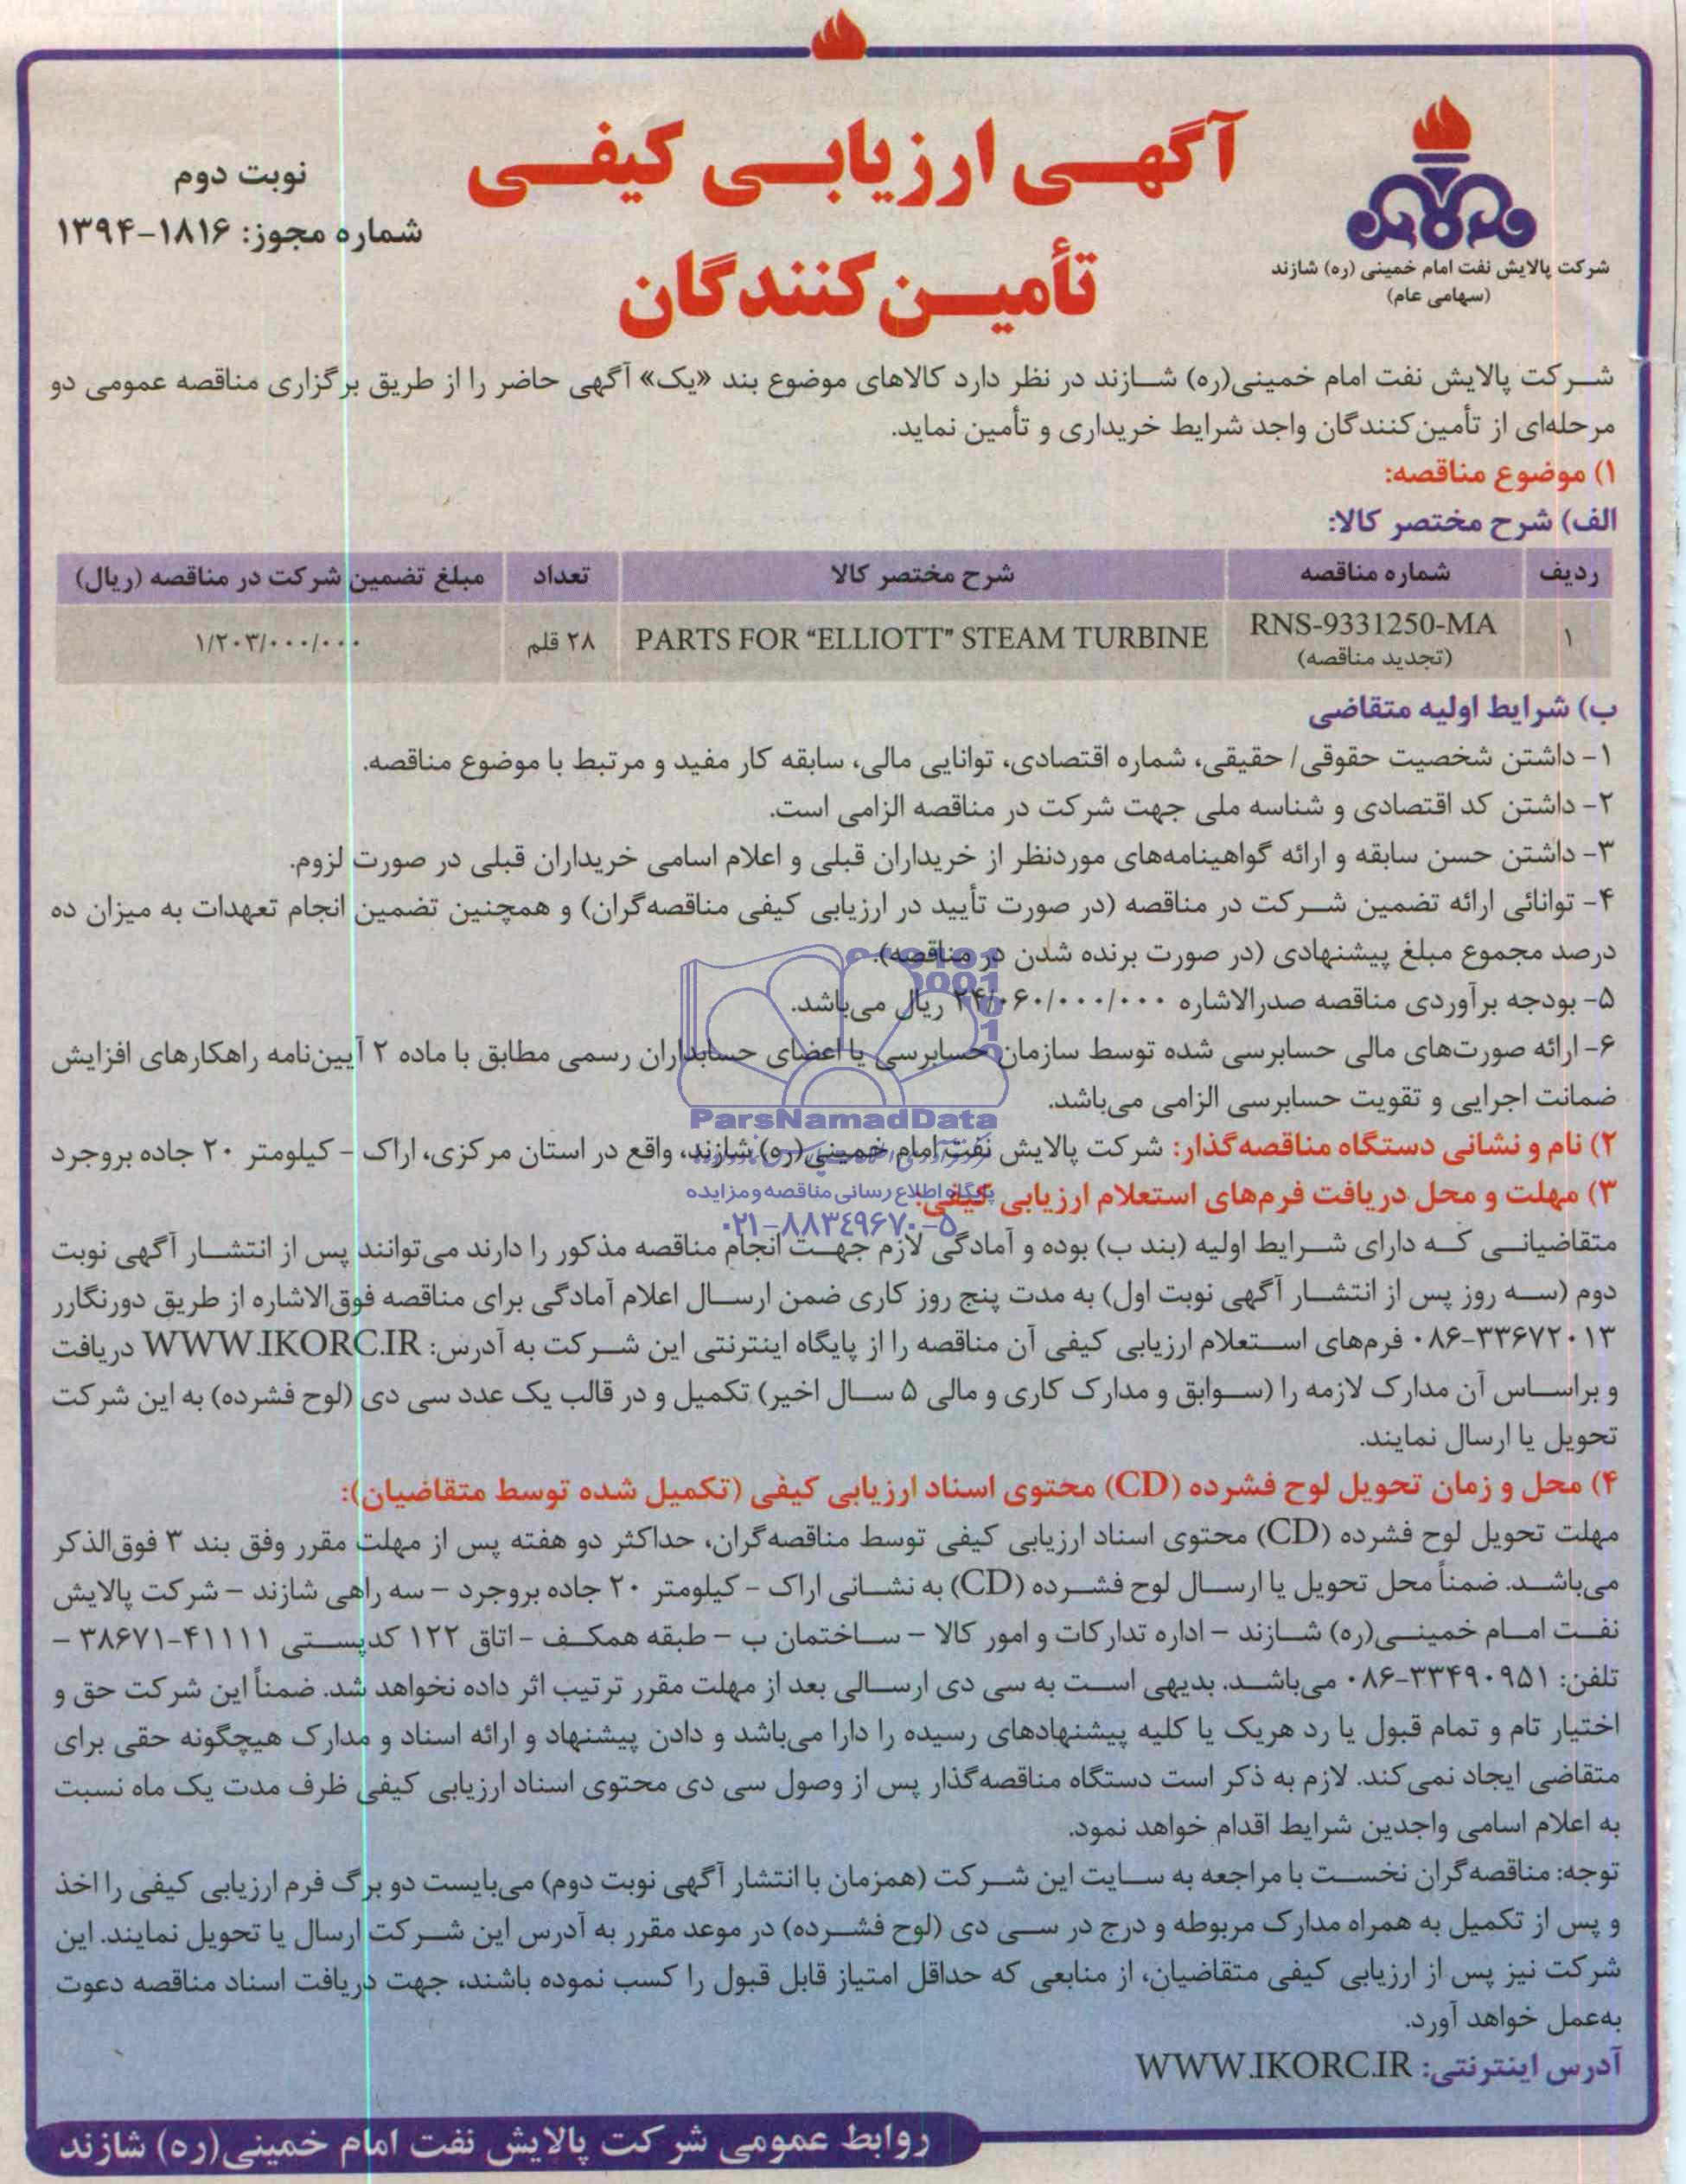 آگهی ارزیابی کیفی
تأمین‌کنندگان
نوبت دوم
شماره مجوز: ۱۸۱۶-۱۳۹۴
شرکت پالایش نفت امام خمینی (ره) شازند
(سهامی عام)
شرکت پالایش نفت امام خمینی(ره) شازند در نظر دارد کالاهای موضوع بند «یک» آگهی حاضر را از طریق برگزاری مناقصه عمومی دو
مرحله‌ای از تأمین‌کنندگان واجد شرایط خریداری و تأمین نماید.
۱) موضوع مناقصه:
الف) شرح مختصر کالا:
ردیف شماره مناقصه شرح مختصر کالا تعداد مبلغ تضمین شرکت در مناقصه (ریال)
۱ RNS-9331250-MA (تجدید مناقصه) PARTS FOR “ELLIOTT” STEAM TURBINE ۲۸ قلم ۱/۲۰۳/۰۰۰/۰۰۰
ب) شرایط اولیه متقاضی
۱- داشتن شخصیت حقوقی/ حقیقی، شماره اقتصادی، توانایی مالی، سابقه کار مفید و مرتبط با موضوع مناقصه.
۲- داشتن کد اقتصادی و شناسه ملی جهت شرکت در مناقصه الزامی است.
۳- داشتن حسن سابقه و ارائه گواهینامه‌های موردنظر از خریداران قبلی و اعلام اسامی خریداران قبلی در صورت لزوم.
۴- توانائی ارائه تضمین شرکت در مناقصه (در صورت تأیید در ارزیابی کیفی مناقصه‌گران) و همچنین تضمین انجام تعهدات به میزان ده
درصد مجموع مبلغ پیشنهادی (در صورت برنده شدن در مناقصه).
۵- بودجه برآوردی مناقصه صدرالاشاره ۲۴/۰۶۰/۰۰۰/۰۰۰ ریال می‌باشد.
۶- ارائه صورت‌های مالی حسابرسی شده توسط سازمان حسابرسی یا اعضای حسابداران رسمی مطابق با ماده ۲ آیین‌نامه راهکارهای افزایش
ضمانت اجرایی و تقویت حسابرسی الزامی می‌باشد.
ParsNamadData
۲) نام و نشانی دستگاه مناقصه‌گذار: شرکت پالایش نفت امام خمینی(ره) شازند، واقع در استان مرکزی، اراک - کیلومتر ۲۰ جاده بروجرد
۳) مهلت و محل دریافت فرم‌های استعلام ارزیابی کیفی:
پایگاه اطلاع رسانی مناقصه و مزایده
۰۲۱-۸۸۳۴۹۶۷۰-۵
متقاضیانی که دارای شرایط اولیه (بند ب) بوده و آمادگی لازم جهت انجام مناقصه مذکور را دارند می‌توانند پس از انتشار آگهی نوبت
دوم (سه روز پس از انتشار آگهی نوبت اول) به مدت پنج روز کاری ضمن ارسال اعلام آمادگی برای مناقصه فوق‌الاشاره از طریق دورنگارر
۰۸۶-۳۳۶۷۲۰۱۳ فرم‌های استعلام ارزیابی کیفی آن مناقصه را از پایگاه اینترنتی این شرکت به آدرس: WWW.IKORC.IR دریافت
و براساس آن مدارک لازمه را (سوابق و مدارک کاری و مالی ۵ سال اخیر) تکمیل و در قالب یک عدد سی دی (لوح فشرده) به این شرکت
تحویل یا ارسال نمایند.
۴) محل و زمان تحویل لوح فشرده (CD) محتوی اسناد ارزیابی کیفی (تکمیل شده توسط متقاضیان):
مهلت تحویل لوح فشرده (CD) محتوی اسناد ارزیابی کیفی توسط مناقصه‌گران، حداکثر دو هفته پس از مهلت مقرر وفق بند ۳ فوق‌الذکر
می‌باشد. ضمناً محل تحویل یا ارسال لوح فشرده (CD) به نشانی اراک - کیلومتر ۲۰ جاده بروجرد - سه راهی شازند - شرکت پالایش
نفت امام خمینی(ره) شازند - اداره تدارکات و امور کالا - ساختمان ب - طبقه همکف - اتاق ۱۲۲ کدپستی ۴۱۱۱۱-۳۸۶۷۱ -
تلفن: ۰۸۶-۳۳۴۹۰۹۵۱ می‌باشد. بدیهی است به سی دی ارسالی بعد از مهلت مقرر ترتیب اثر داده نخواهد شد. ضمناً این شرکت حق و
اختیار تام و تمام قبول یا رد هریک یا کلیه پیشنهادهای رسیده را دارا می‌باشد و دادن پیشنهاد و ارائه اسناد و مدارک هیچگونه حقی برای
متقاضی ایجاد نمی‌کند. لازم به ذکر است دستگاه مناقصه‌گذار پس از وصول سی دی محتوی اسناد ارزیابی کیفی ظرف مدت یک ماه نسبت
به اعلام اسامی واجدین شرایط اقدام خواهد نمود.
توجه: مناقصه‌گران نخست با مراجعه به سایت این شرکت (همزمان با انتشار آگهی نوبت دوم) می‌بایست دو برگ فرم ارزیابی کیفی را اخذ
و پس از تکمیل به همراه مدارک مربوطه و درج در سی دی (لوح فشرده) در موعد مقرر به آدرس این شرکت ارسال یا تحویل نمایند. این
شرکت نیز پس از ارزیابی کیفی متقاضیان، از منابعی که حداقل امتیاز قابل قبول را کسب نموده باشند، جهت دریافت اسناد مناقصه دعوت
به‌عمل خواهد آورد.
آدرس اینترنتی: WWW.IKORC.IR
روابط عمومی شرکت پالایش نفت امام خمینی(ره) شازند